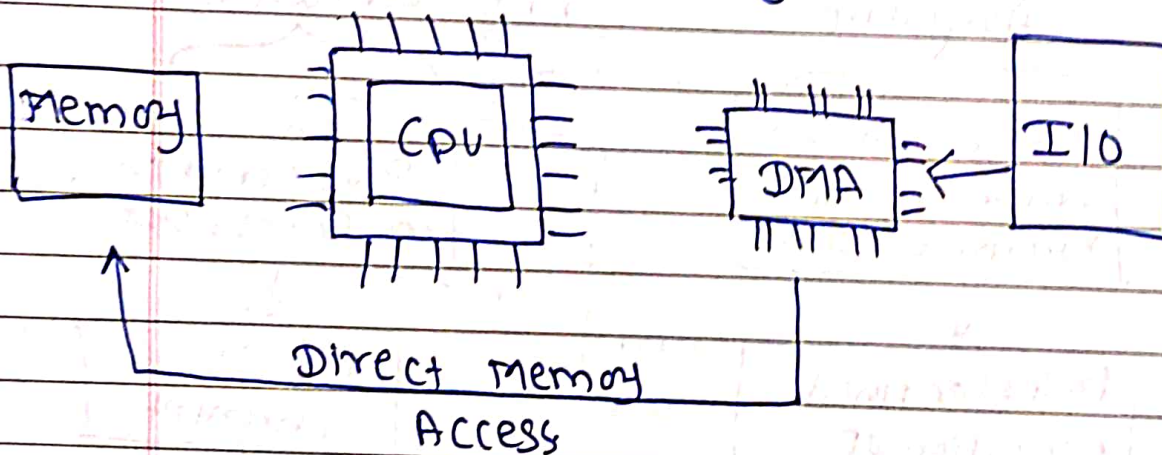 Memory
CPU
DMA
I/O
Direct Memory
Access